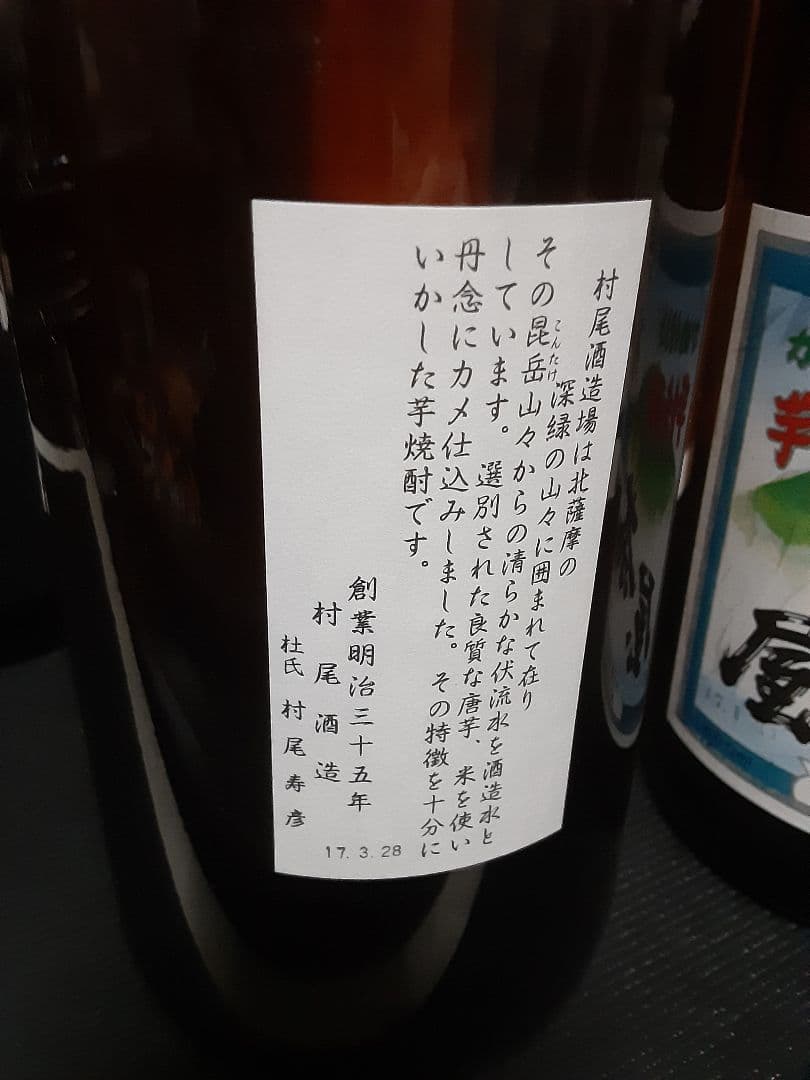 村尾酒造場は北薩摩の
深緑の山々に囲まれて在り
その昆岳山々からの清らかな伏流水を酒造水と
こんたけ
しています。選別された良質な唐芋、米を使い
丹念にカメ仕込みしました。その特徴を十分に
いかした芋焼酎です。
創業明治三十五年
村尾酒造
杜氏 村尾寿彦
17.3.28
芋